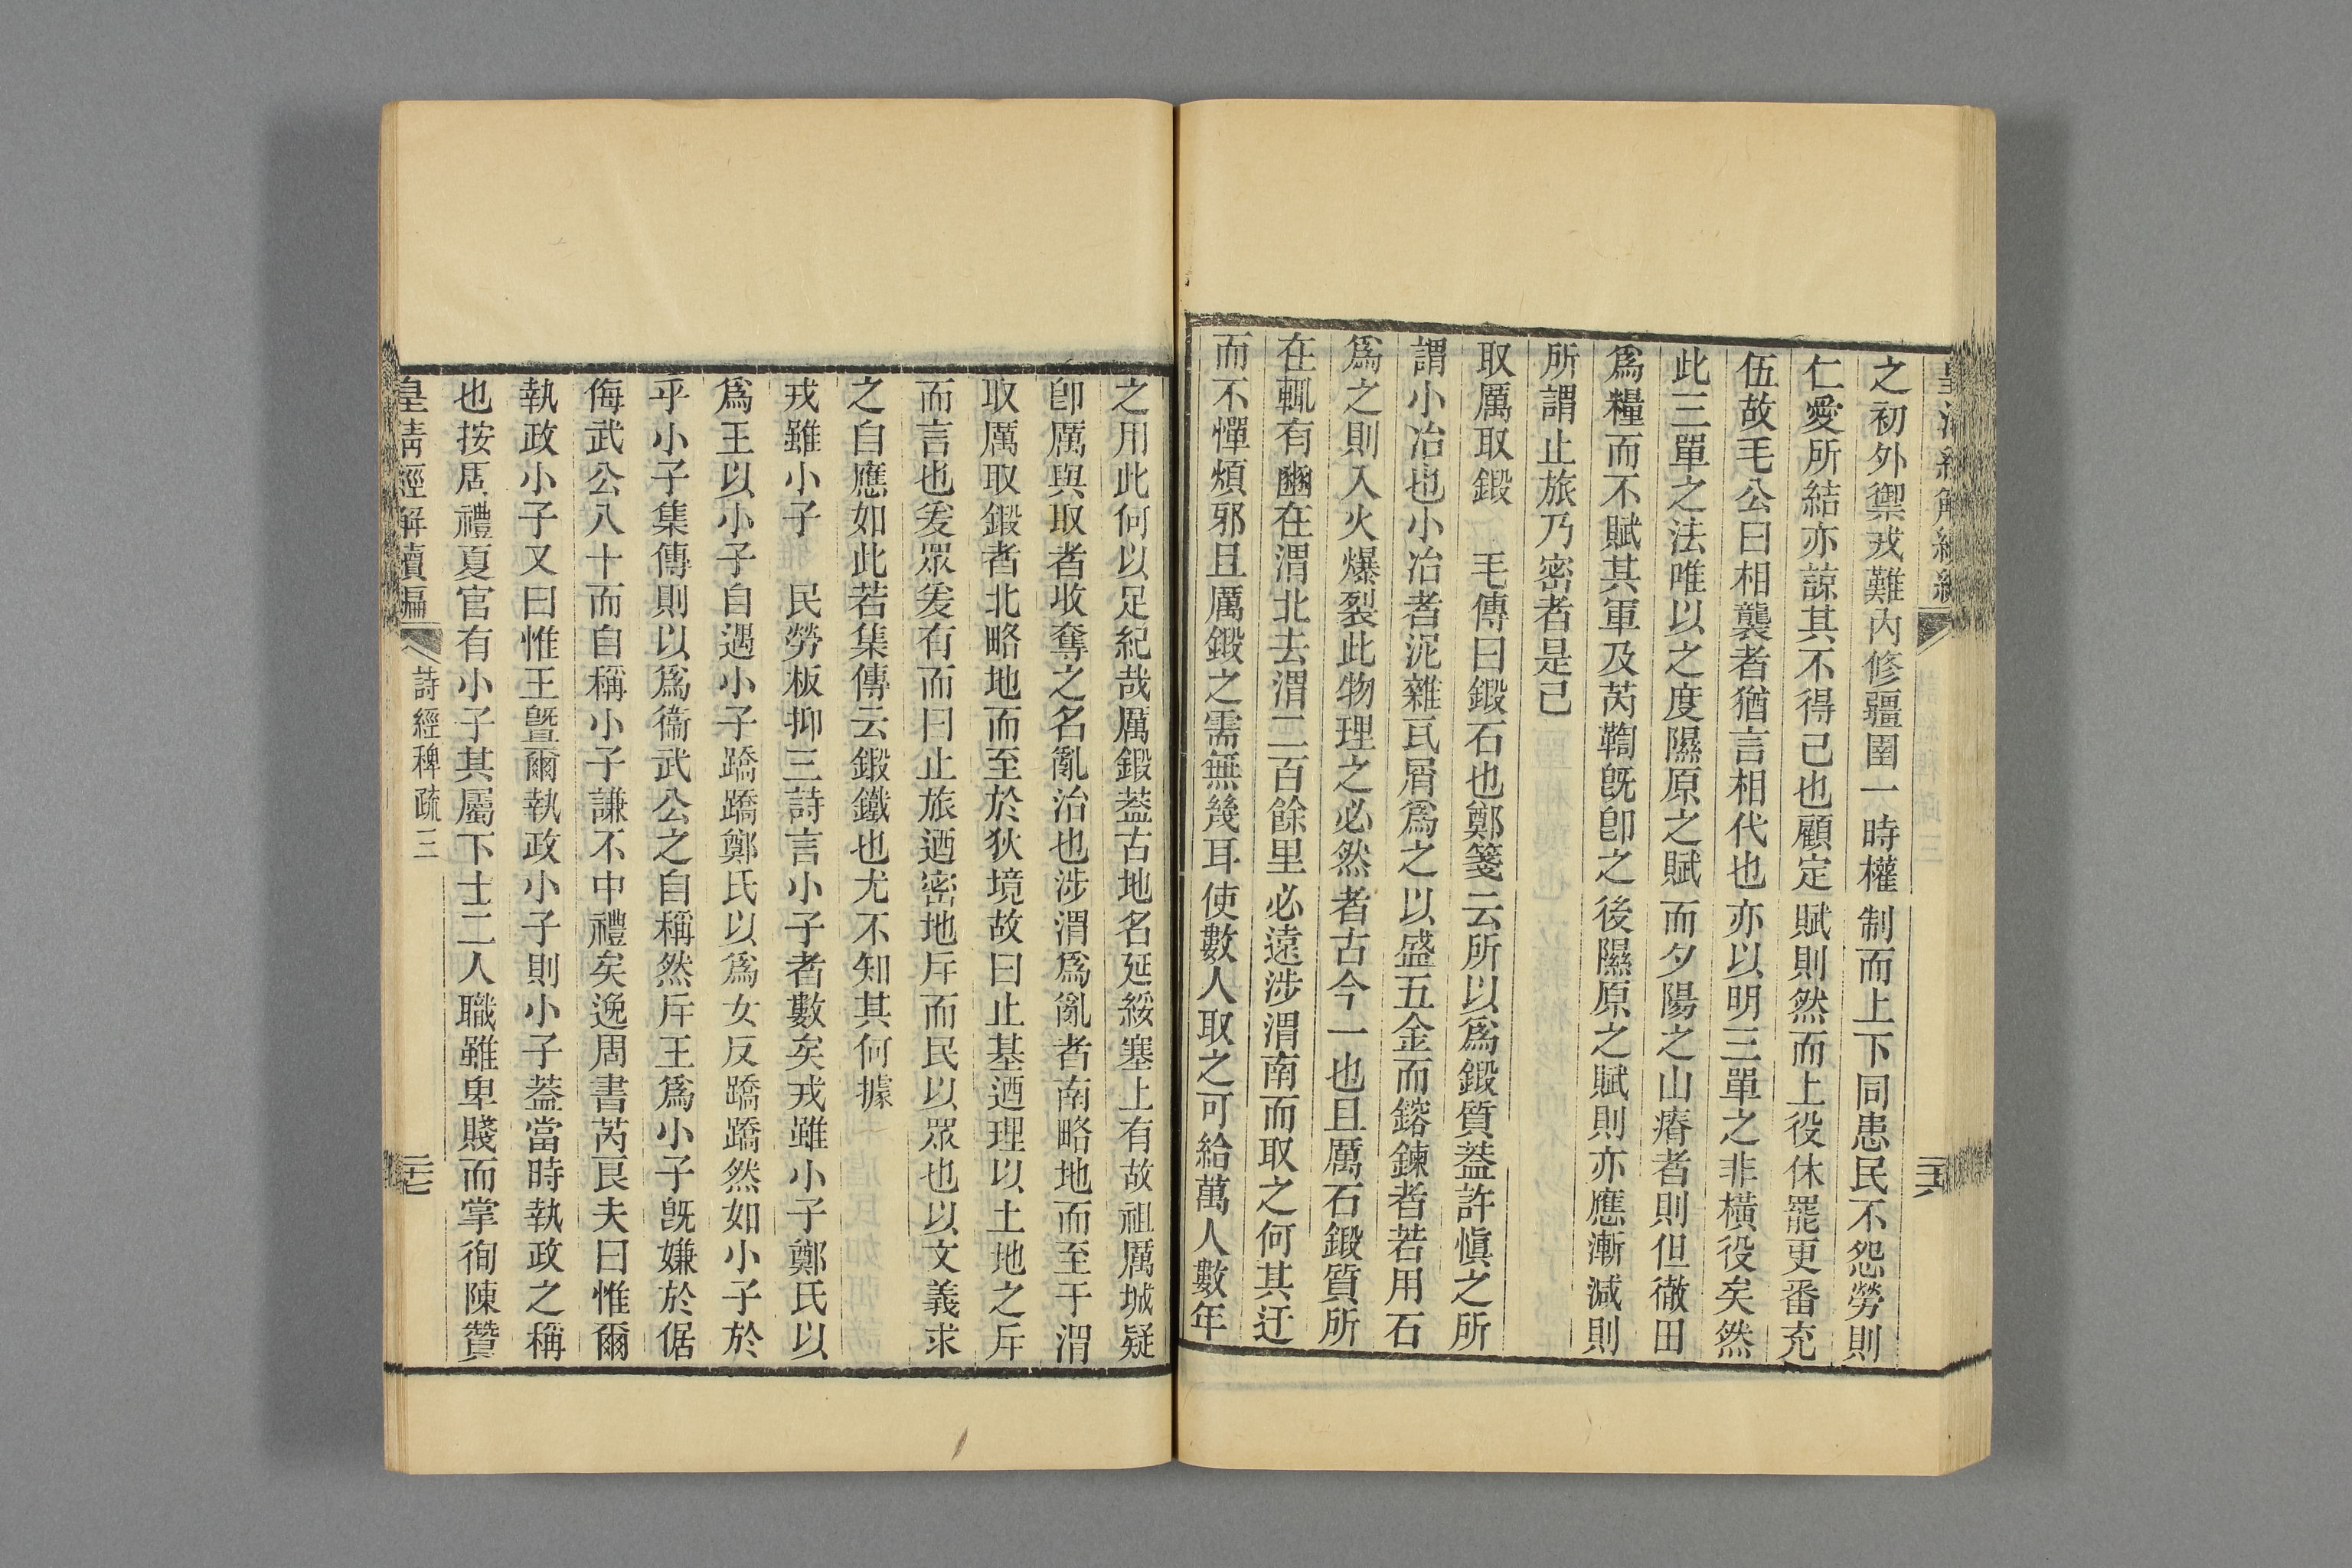 之初外禦戎難內修疆圉一時權制而上下同患民不怨勞則
仁愛所結亦諒其不得已也顧定賦則然而上役休罷更番充
伍故毛公曰相襲者猶言相代也亦以明三單之非橫役矣然
此三單之法唯以之度隰原之賦而夕陽之山瘠者則但徹田
爲糧而不賦其軍及芮鞫旣卽之後隰原之賦則亦應漸減則
所謂止旅乃密者是已
取厲取鍛　毛傳曰鍛石也鄭箋云所以爲鍛質蓋許愼之所
謂小冶也小冶者泥雜瓦屑爲之以盛五金而鎔鍊者若用石
爲之則入火爆裂此物理之必然者古今一也且厲石鍛質所
在輒有豳在渭北去渭二百餘里必遠涉渭南而取之何其迂
而不憚煩邪且厲鍛之需無幾耳使數人取之可給萬人數年
之用此何以足紀哉厲鍛蓋古地名延綏塞上有故祖厲城疑
卽厲與取者收奪之名亂治也涉渭爲亂者南略地而至于渭
取厲取鍛者北略地而至於狄境故曰止基迺理以土地之斥
而言也爰眾爰有而曰止旅迺密地斥而民以眾也以文義求
之自應如此若集傳云鍛鐵也尤不知其何據
戎雖小子　民勞板抑三詩言小子者數矣戎雖小子鄭氏以
爲王以小子自遇小子蹻蹻鄭氏以爲女反蹻蹻然如小子於
乎小子集傳則以爲衞武公之自稱然斥王爲小子旣嫌於倨
侮武公八十而自稱小子謙不中禮矣逸周書芮良夫曰惟爾
執政小子又曰惟王曁爾執政小子則小子蓋當時執政之稱
也按周禮夏官有小子其屬下士二人職雖卑賤而掌徇陳贊
皇淸經解續編　詩經稗疏三　二十七